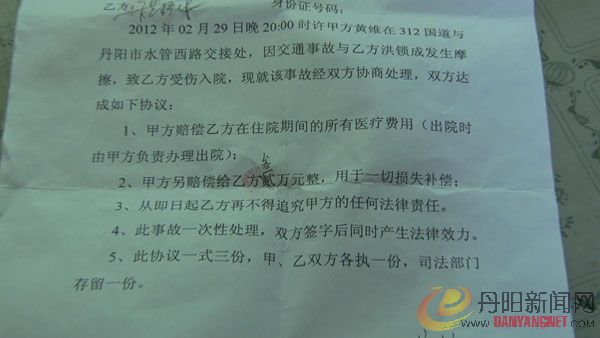 乙方：
身份证号码：
2012 年 02 月 29 日晚 20:00 时许甲方黄维在 312 国道与
丹阳市水管西路交接处，因交通事故与乙方洪锁成发生摩
擦，致乙方受伤入院，现就该事故经双方协商处理，双方达
成如下协议：
1、甲方赔偿乙方在住院期间的所有医疗费用（出院时
由甲方负责办理出院）；
2、甲方另赔偿给乙方贰万元整，用于一切损失补偿；
3、从即日起乙方再不得追究甲方的任何法律责任。
4、此事故一次性处理，双方签字后同时产生法律效力。
5、此协议一式三份，甲、乙双方各执一份，司法部门
存留一份。
丹阳新闻网
DANYANGNET